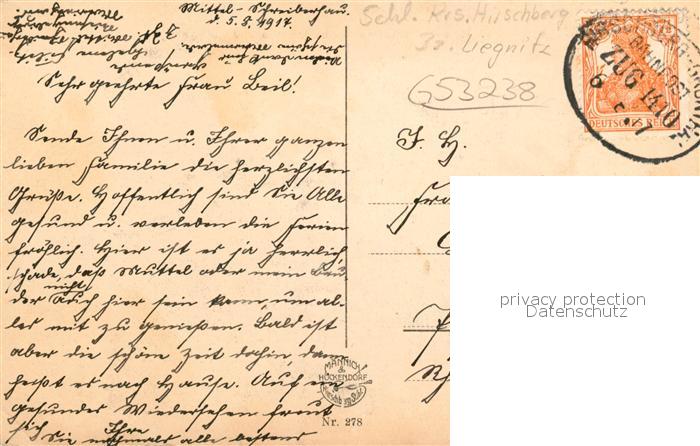 Mittel-Schreiberhau.
d. 5.8.1917.
Sehr geehrte Frau Beil!
Sende Ihnen u. Ihrer ganzen
lieben Familie die herzlichsten
Grüße. Hoffentlich sind Sie Alle
gesund u. verleben die Ferien
fröhlich. Hier ist es ja herrlich,
schade, daß Muttel oder mein Bru-
der auch nicht hier sein kann, um al-
les mit zu genießen. Bald ist
aber die schöne Zeit dahin dann
heißt es nach Hause. Auf ein
gesundes Wiedersehen freut
sich Ihre
Sie nochmals alle bestens
Schl. Krs. Hirschberg
Bz. Liegnitz
G53238
DEUTSCHES REICH
BAHNPOST
ZUG 1410
J. H.
Fra
MÄNNICH
&
HÖCKENDORF
Nr. 278
privacy protection
Datenschutz